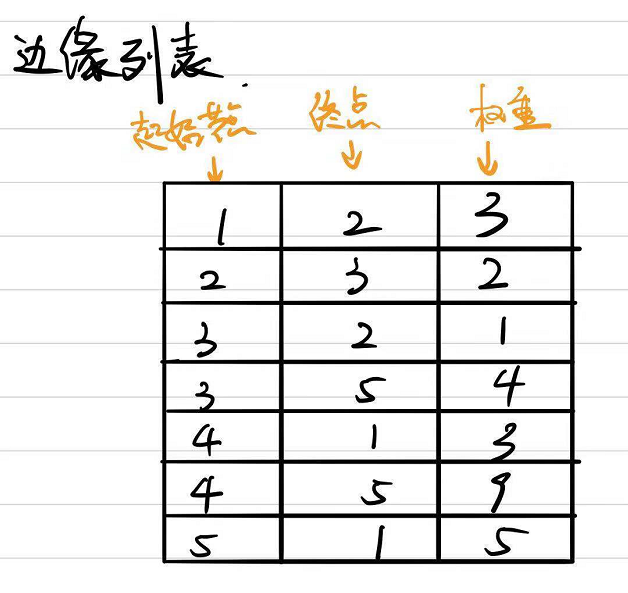 边缘列表.
起始点 终点 权重
1 2 3
2 3 2
3 2 1
3 5 4
4 1 3
4 5 9
5 1 5